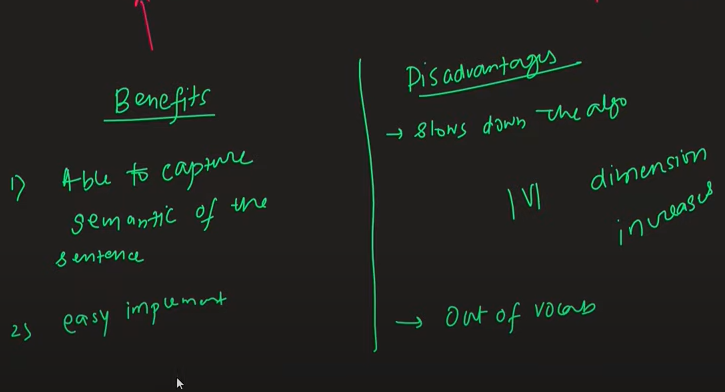 Benefits
1) Able to capture
semantic of the
sentence
2) easy implement
Disadvantages
→ Slows down the algo
|V| dimension
increases
→ Out of vocab